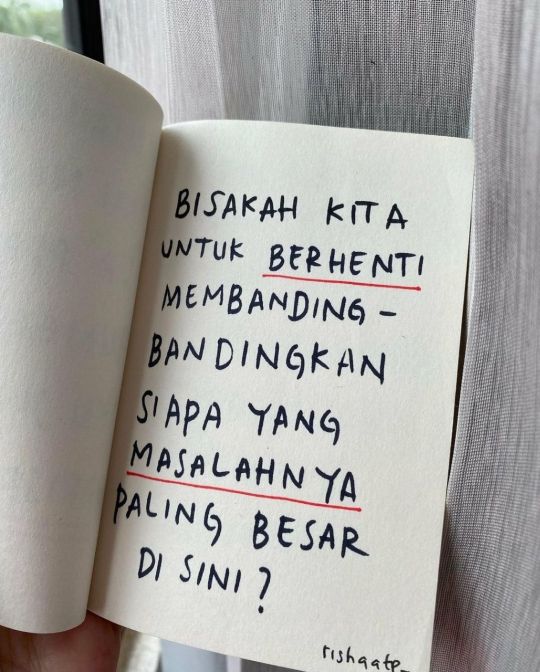 BISAKAH KITA
UNTUK BERHENTI
MEMBANDING-
BANDINGKAN
SIAPA YANG
MASALAHNYA
PALING BESAR
DI SINI?
rishaatp_